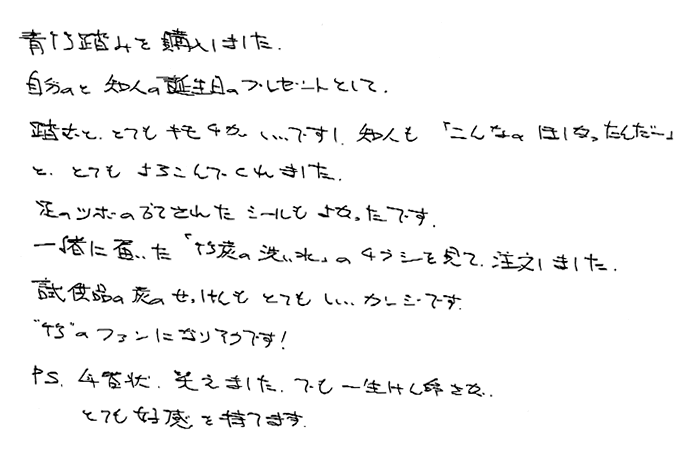 青竹踏みを購入しました.
自分のと知人の誕生日のプレゼントとして.
踏むと、とてもキモチがいいですし、知人も「こんなの ほしかったんだー」
と、とても よろこんでくれました.
足のツボの のってされた シールも よかったです.
一緒に届いた「竹炭の洗い水」のチラシを見て、注文しました.
試供品の炭のせっけんも とても いい カンジです.
"竹"のファンになりソウです!
PS. 年賀状、笑えました. でも一生けん命さが、
とても好感を持てます.